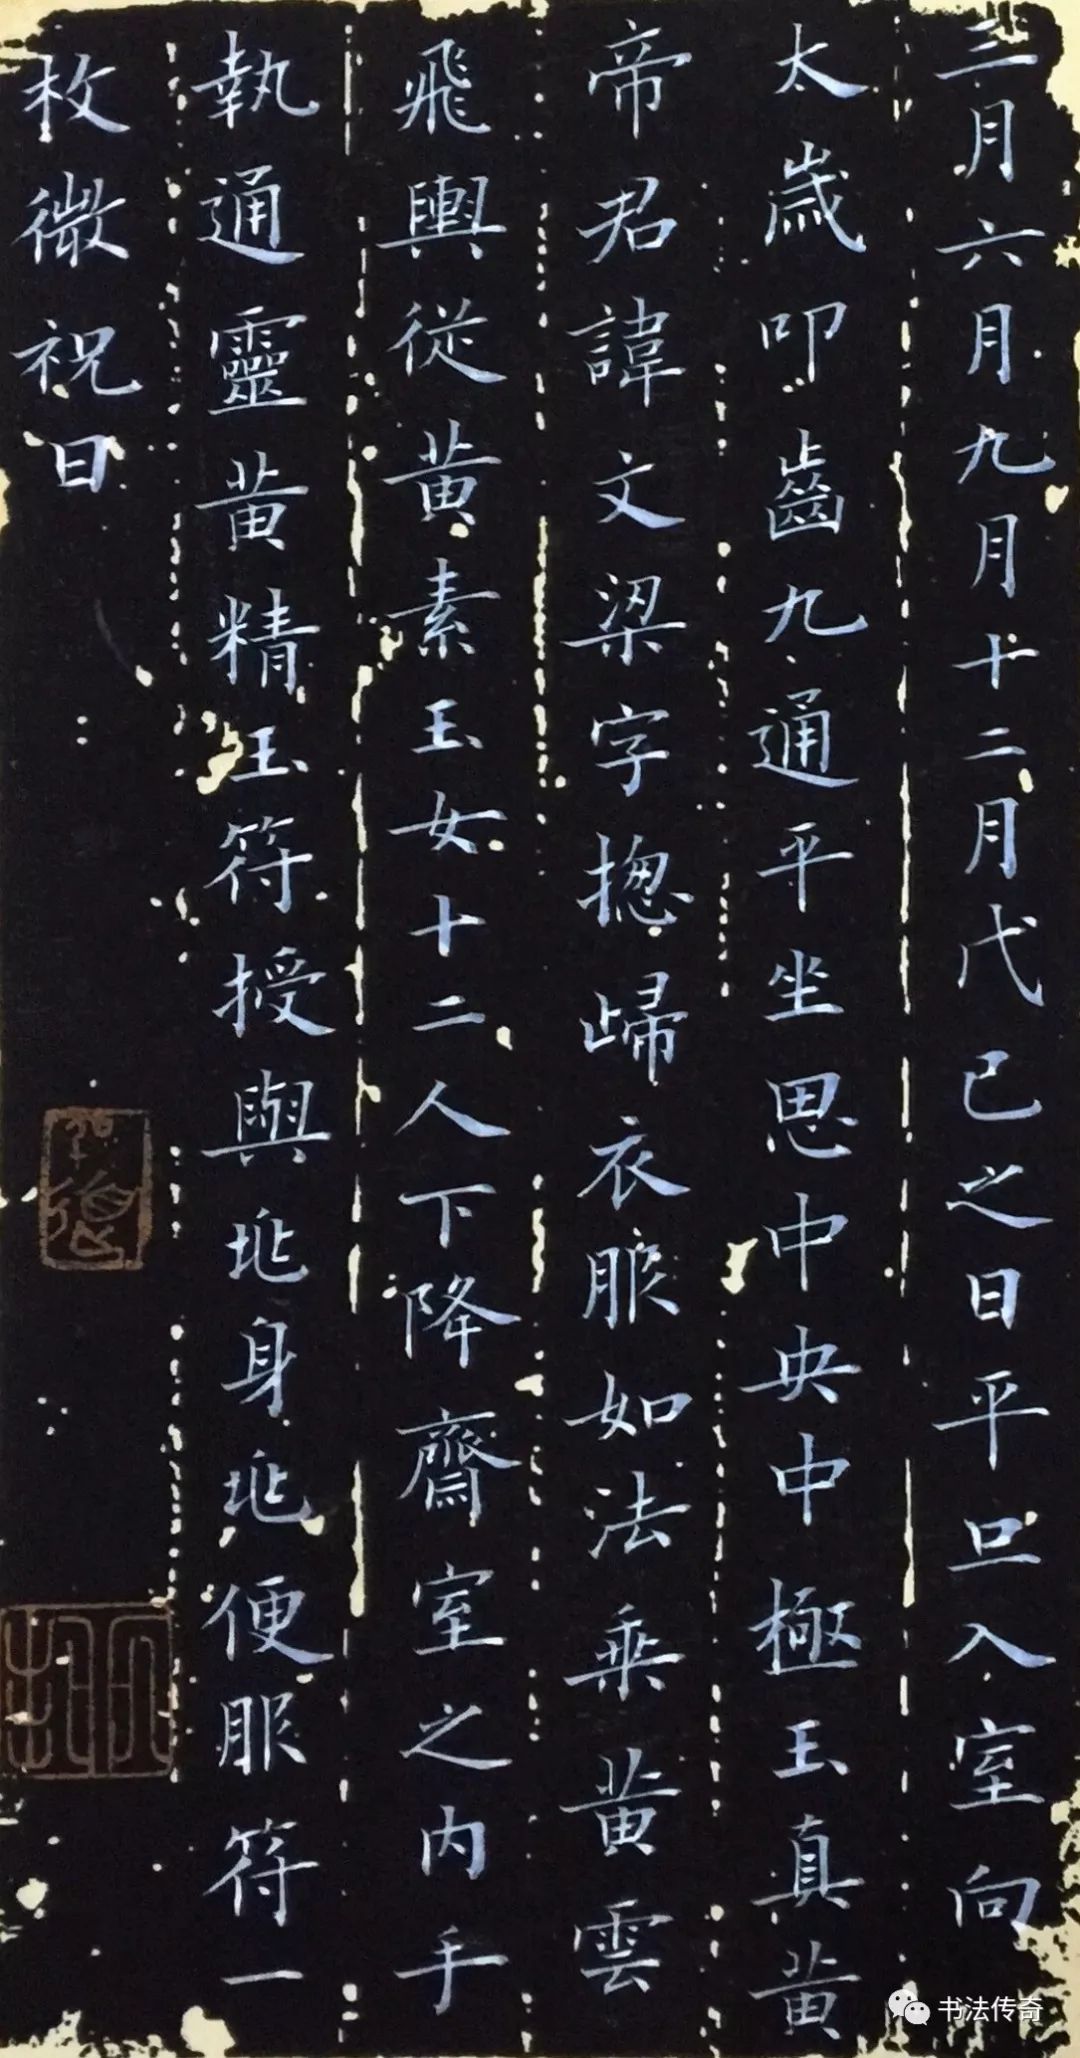 三月六月九月十二月戊己之日平旦入室向
太歲叩齒九通平坐思中央中極玉真黃
帝君諱文梁字揔歸衣服如法乘黃雲
飛輿從黃素玉女十二人下降齋室之内手
執通靈黃精玉符授與兆身兆便服符一
枚微祝曰
书法传奇